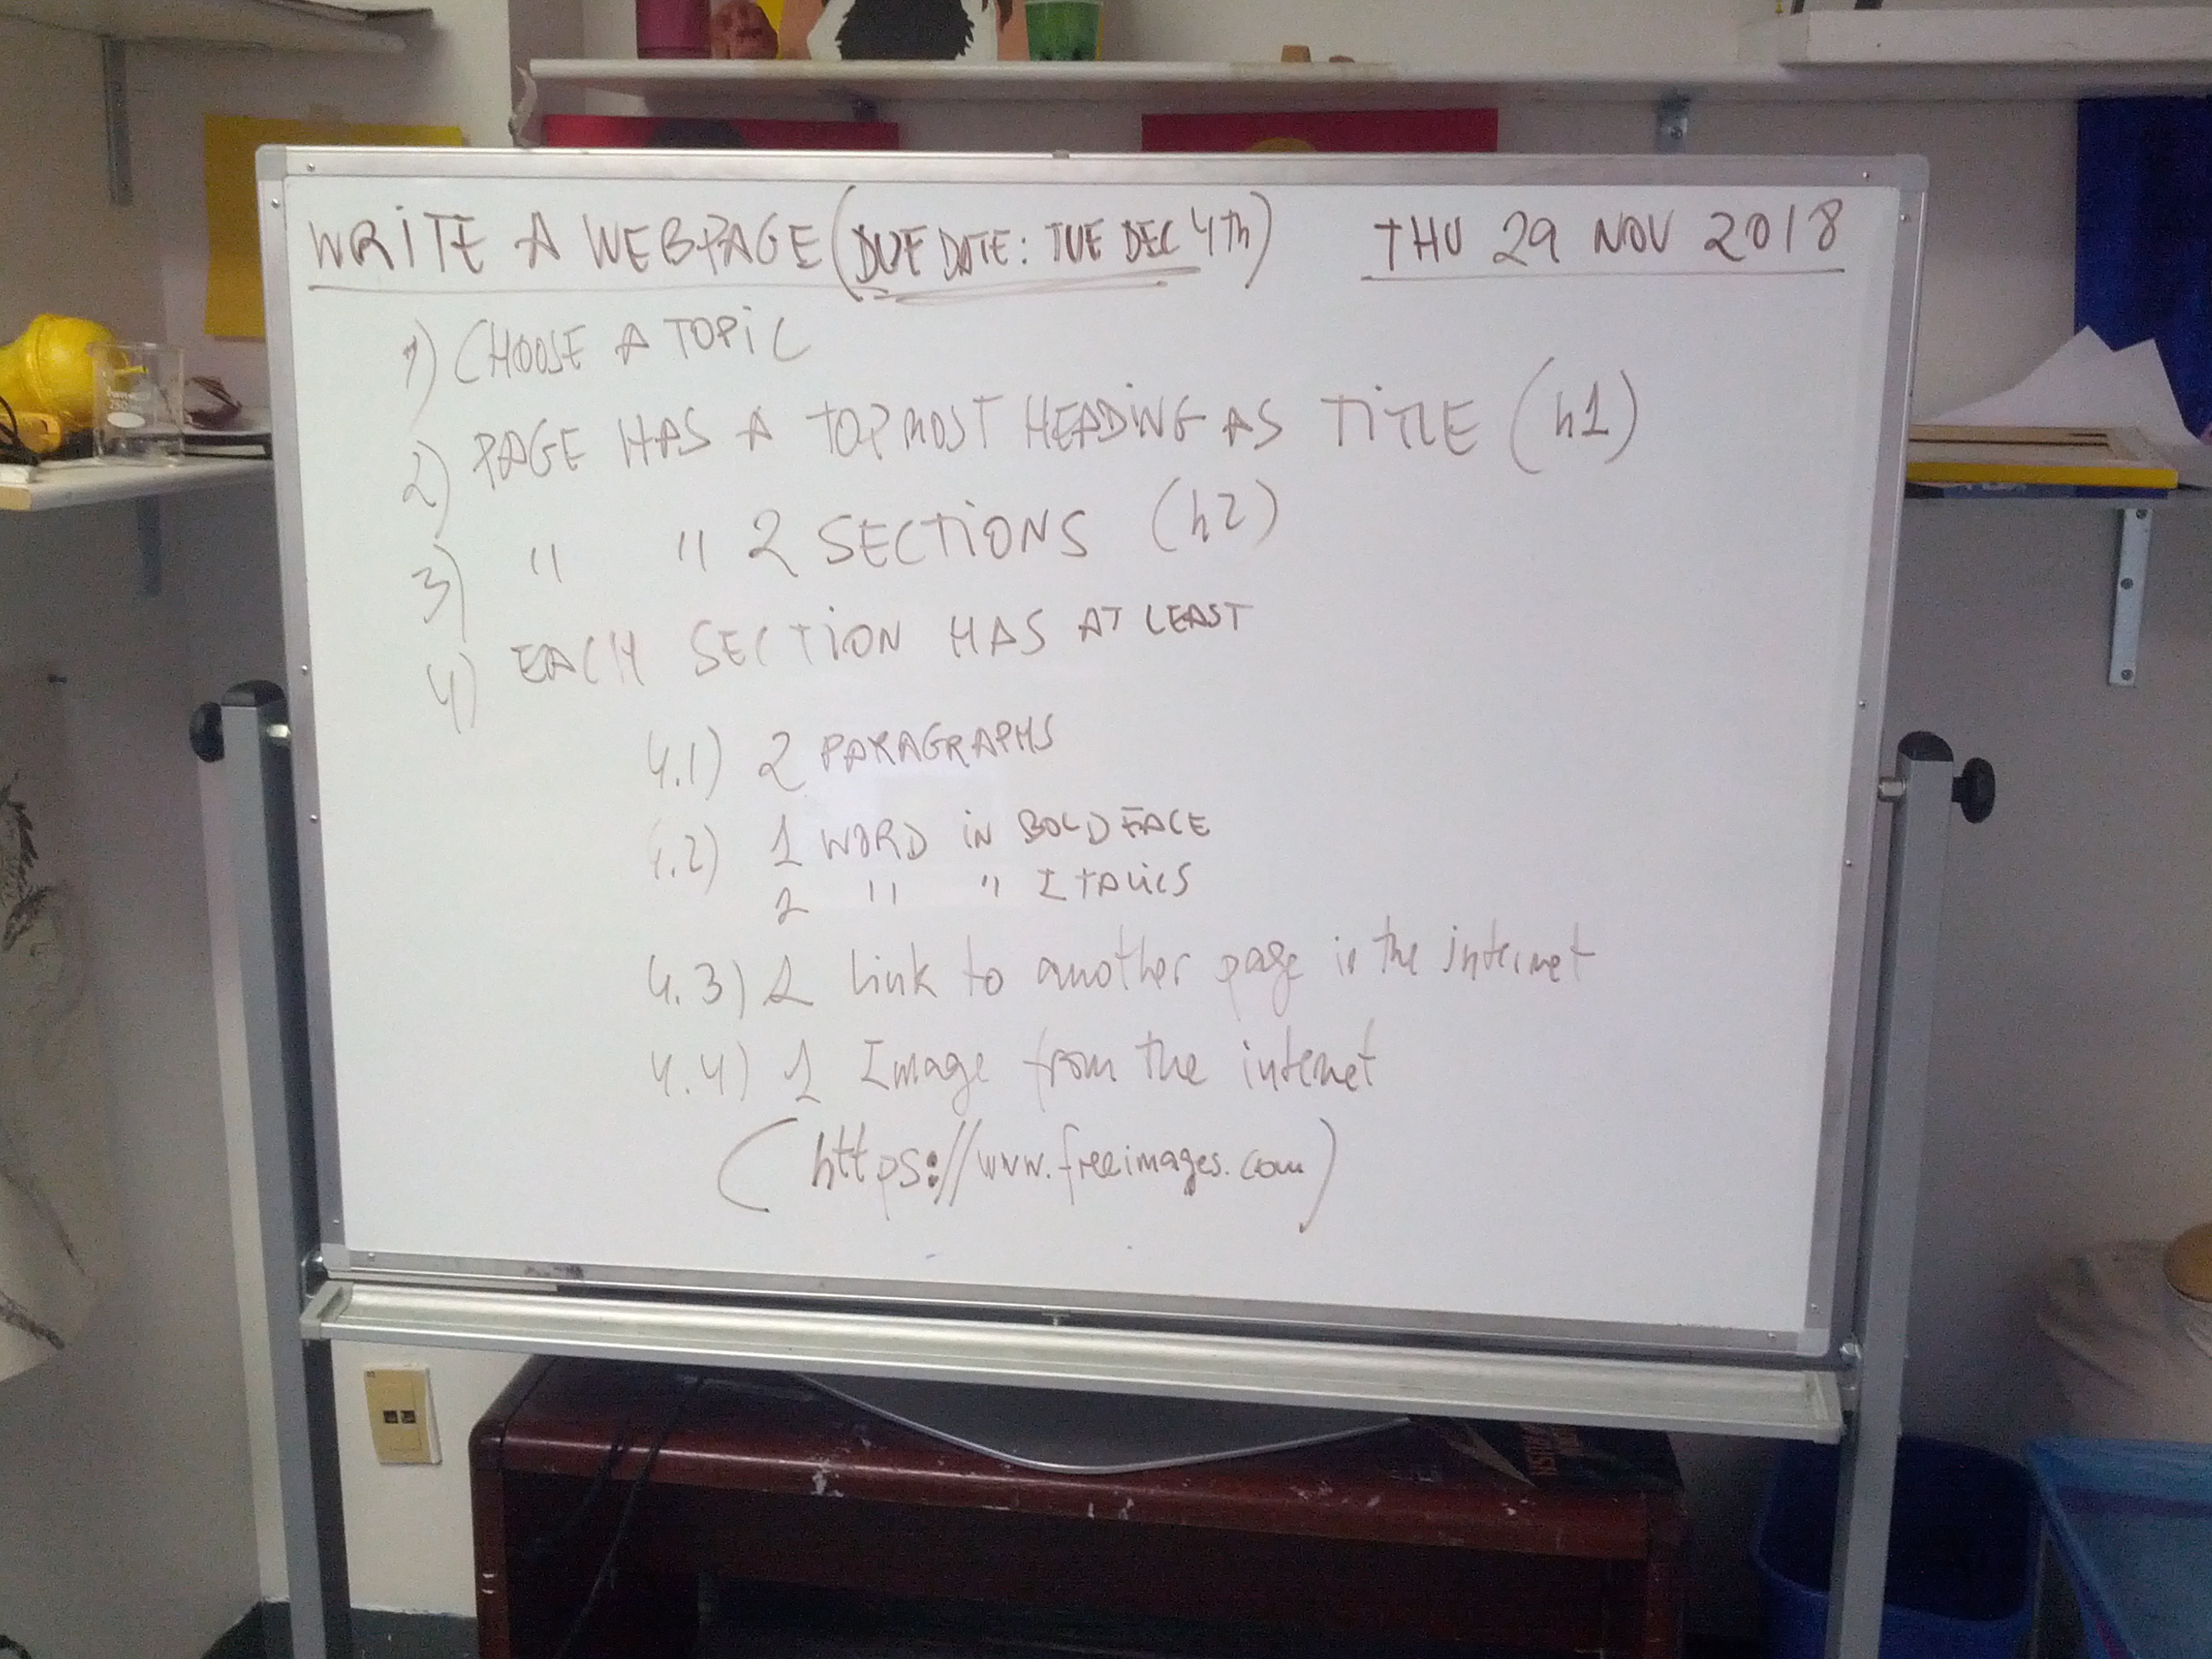 WRITE A WEBPAGE (DUE DATE: TUE DEC 4th) THU 29 NOV 2018
1) CHOOSE A TOPIC
2) PAGE HAS A TOPMOST HEADING AS TITLE (h1)
3) " " 2 SECTIONS (h2)
4) EACH SECTION HAS AT LEAST
4.1) 2 PARAGRAPHS
4.2) 1 WORD IN BOLD FACE
2 " " ITALICS
4.3) 1 link to another page in the internet
4.4) 1 Image from the internet
(https://www.freeimages.com)